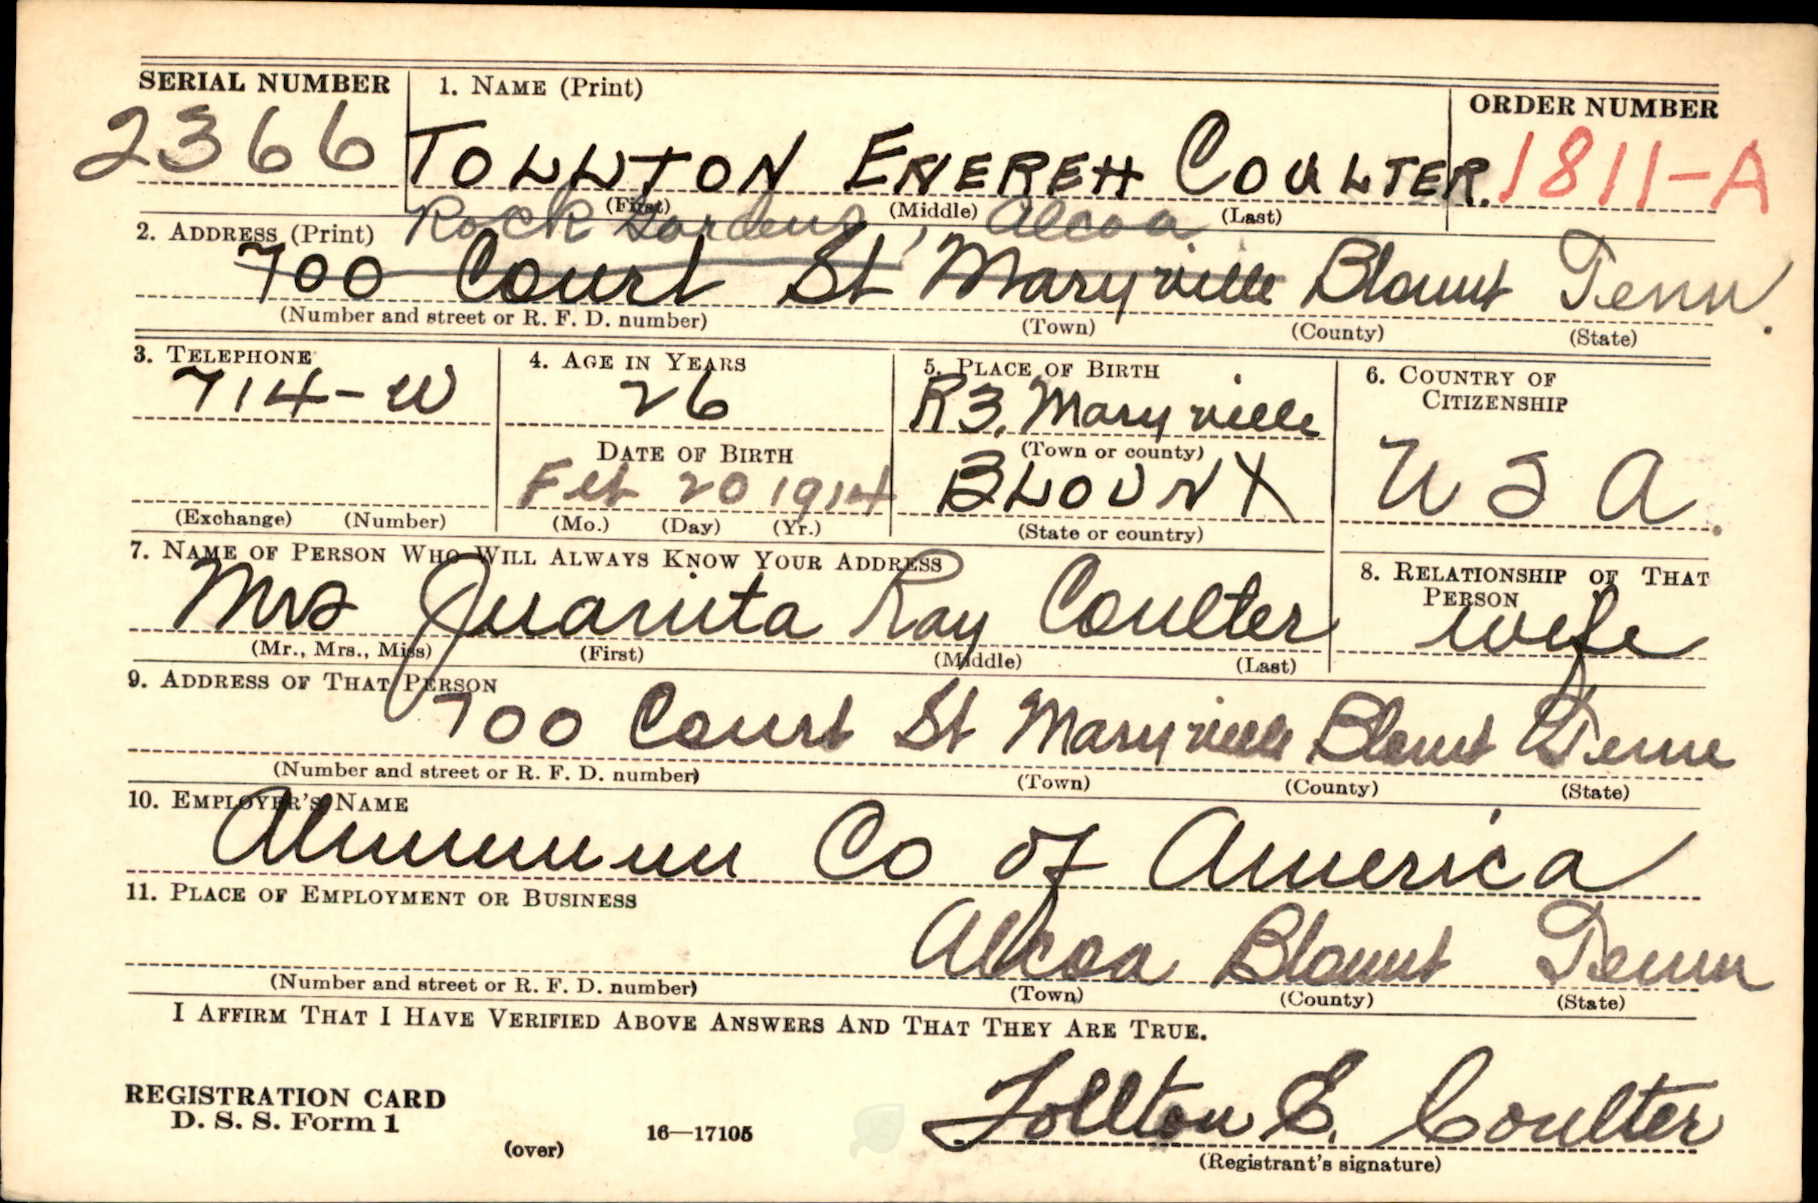 SERIAL NUMBER 1. NAME (Print) ORDER NUMBER
2366 TOLLTON EVERETT COULTER. 1811-A
(First) (Middle) (Last)
Rock Gardens, Alcoa
2. ADDRESS (Print)
700 Court St Maryville Blount Tenn.
(Number and street or R. F. D. number) (Town) (County) (State)
3. TELEPHONE 4. AGE IN YEARS 5. PLACE OF BIRTH 6. COUNTRY OF CITIZENSHIP
714-W 26 R3, Maryville
(Town or county)
DATE OF BIRTH
Feb 20 1914 BLOUNT U S A.
(Exchange) (Number) (Mo.) (Day) (Yr.) (State or country)
7. NAME OF PERSON WHO WILL ALWAYS KNOW YOUR ADDRESS 8. RELATIONSHIP OF THAT PERSON
Mrs Juanita Ray Coulter wife
(Mr., Mrs., Miss) (First) (Middle) (Last)
9. ADDRESS OF THAT PERSON
700 Court St Maryville Blount Tenn
(Number and street or R. F. D. number) (Town) (County) (State)
10. EMPLOYER'S NAME
Aluminum Co of America
11. PLACE OF EMPLOYMENT OR BUSINESS
Alcoa Blount Tenn
(Number and street or R. F. D. number) (Town) (County) (State)
I AFFIRM THAT I HAVE VERIFIED ABOVE ANSWERS AND THAT THEY ARE TRUE.
REGISTRATION CARD
D. S. S. Form 1
(over) 16—17105
Tollton E. Coulter
(Registrant's signature)